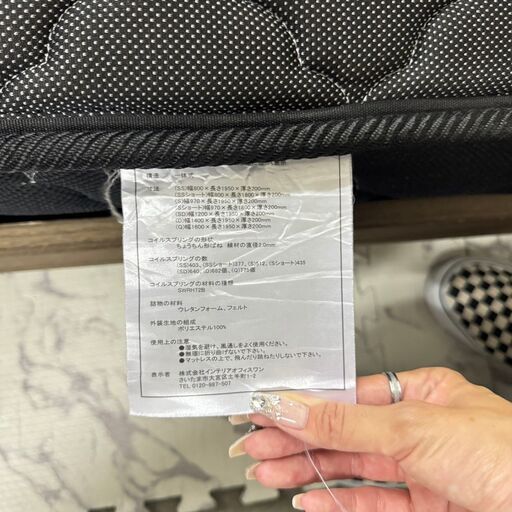 構造 一体式
寸法 (SS)幅800×長さ1950×厚さ200mm
(SSショート)幅800×長さ1800×厚さ200mm
(S)幅970×長さ1950×厚さ200mm
(Sショート)幅970×長さ1800×厚さ200mm
(SD)幅1200×長さ1950×厚さ200mm
(D)幅1400×長さ1950×厚さ200mm
(Q)幅1600×長さ1950×厚さ200mm
コイルスプリングの形状
ちょうちん形ばね 線材の直径2.0mm
コイルスプリングの数
(SS)403、(SSショート)377、(S)512、(Sショート)435
(SD)640、(D)682個、(Q)775個
コイルスプリングの材料の種類
SWRH72B
詰物の材料
ウレタンフォーム、フェルト
外装生地の組成
ポリエステル100%
使用上の注意
●湿気を避け、風通しをよく使用ください。
●無理に折り曲げないで下さい。
●マットレスの上で、飛んだり跳ねたりしないで下さい。
表示者 株式会社インテリアオフィスワン
さいたま市大宮区土手町1-2
TEL 0120-987-507